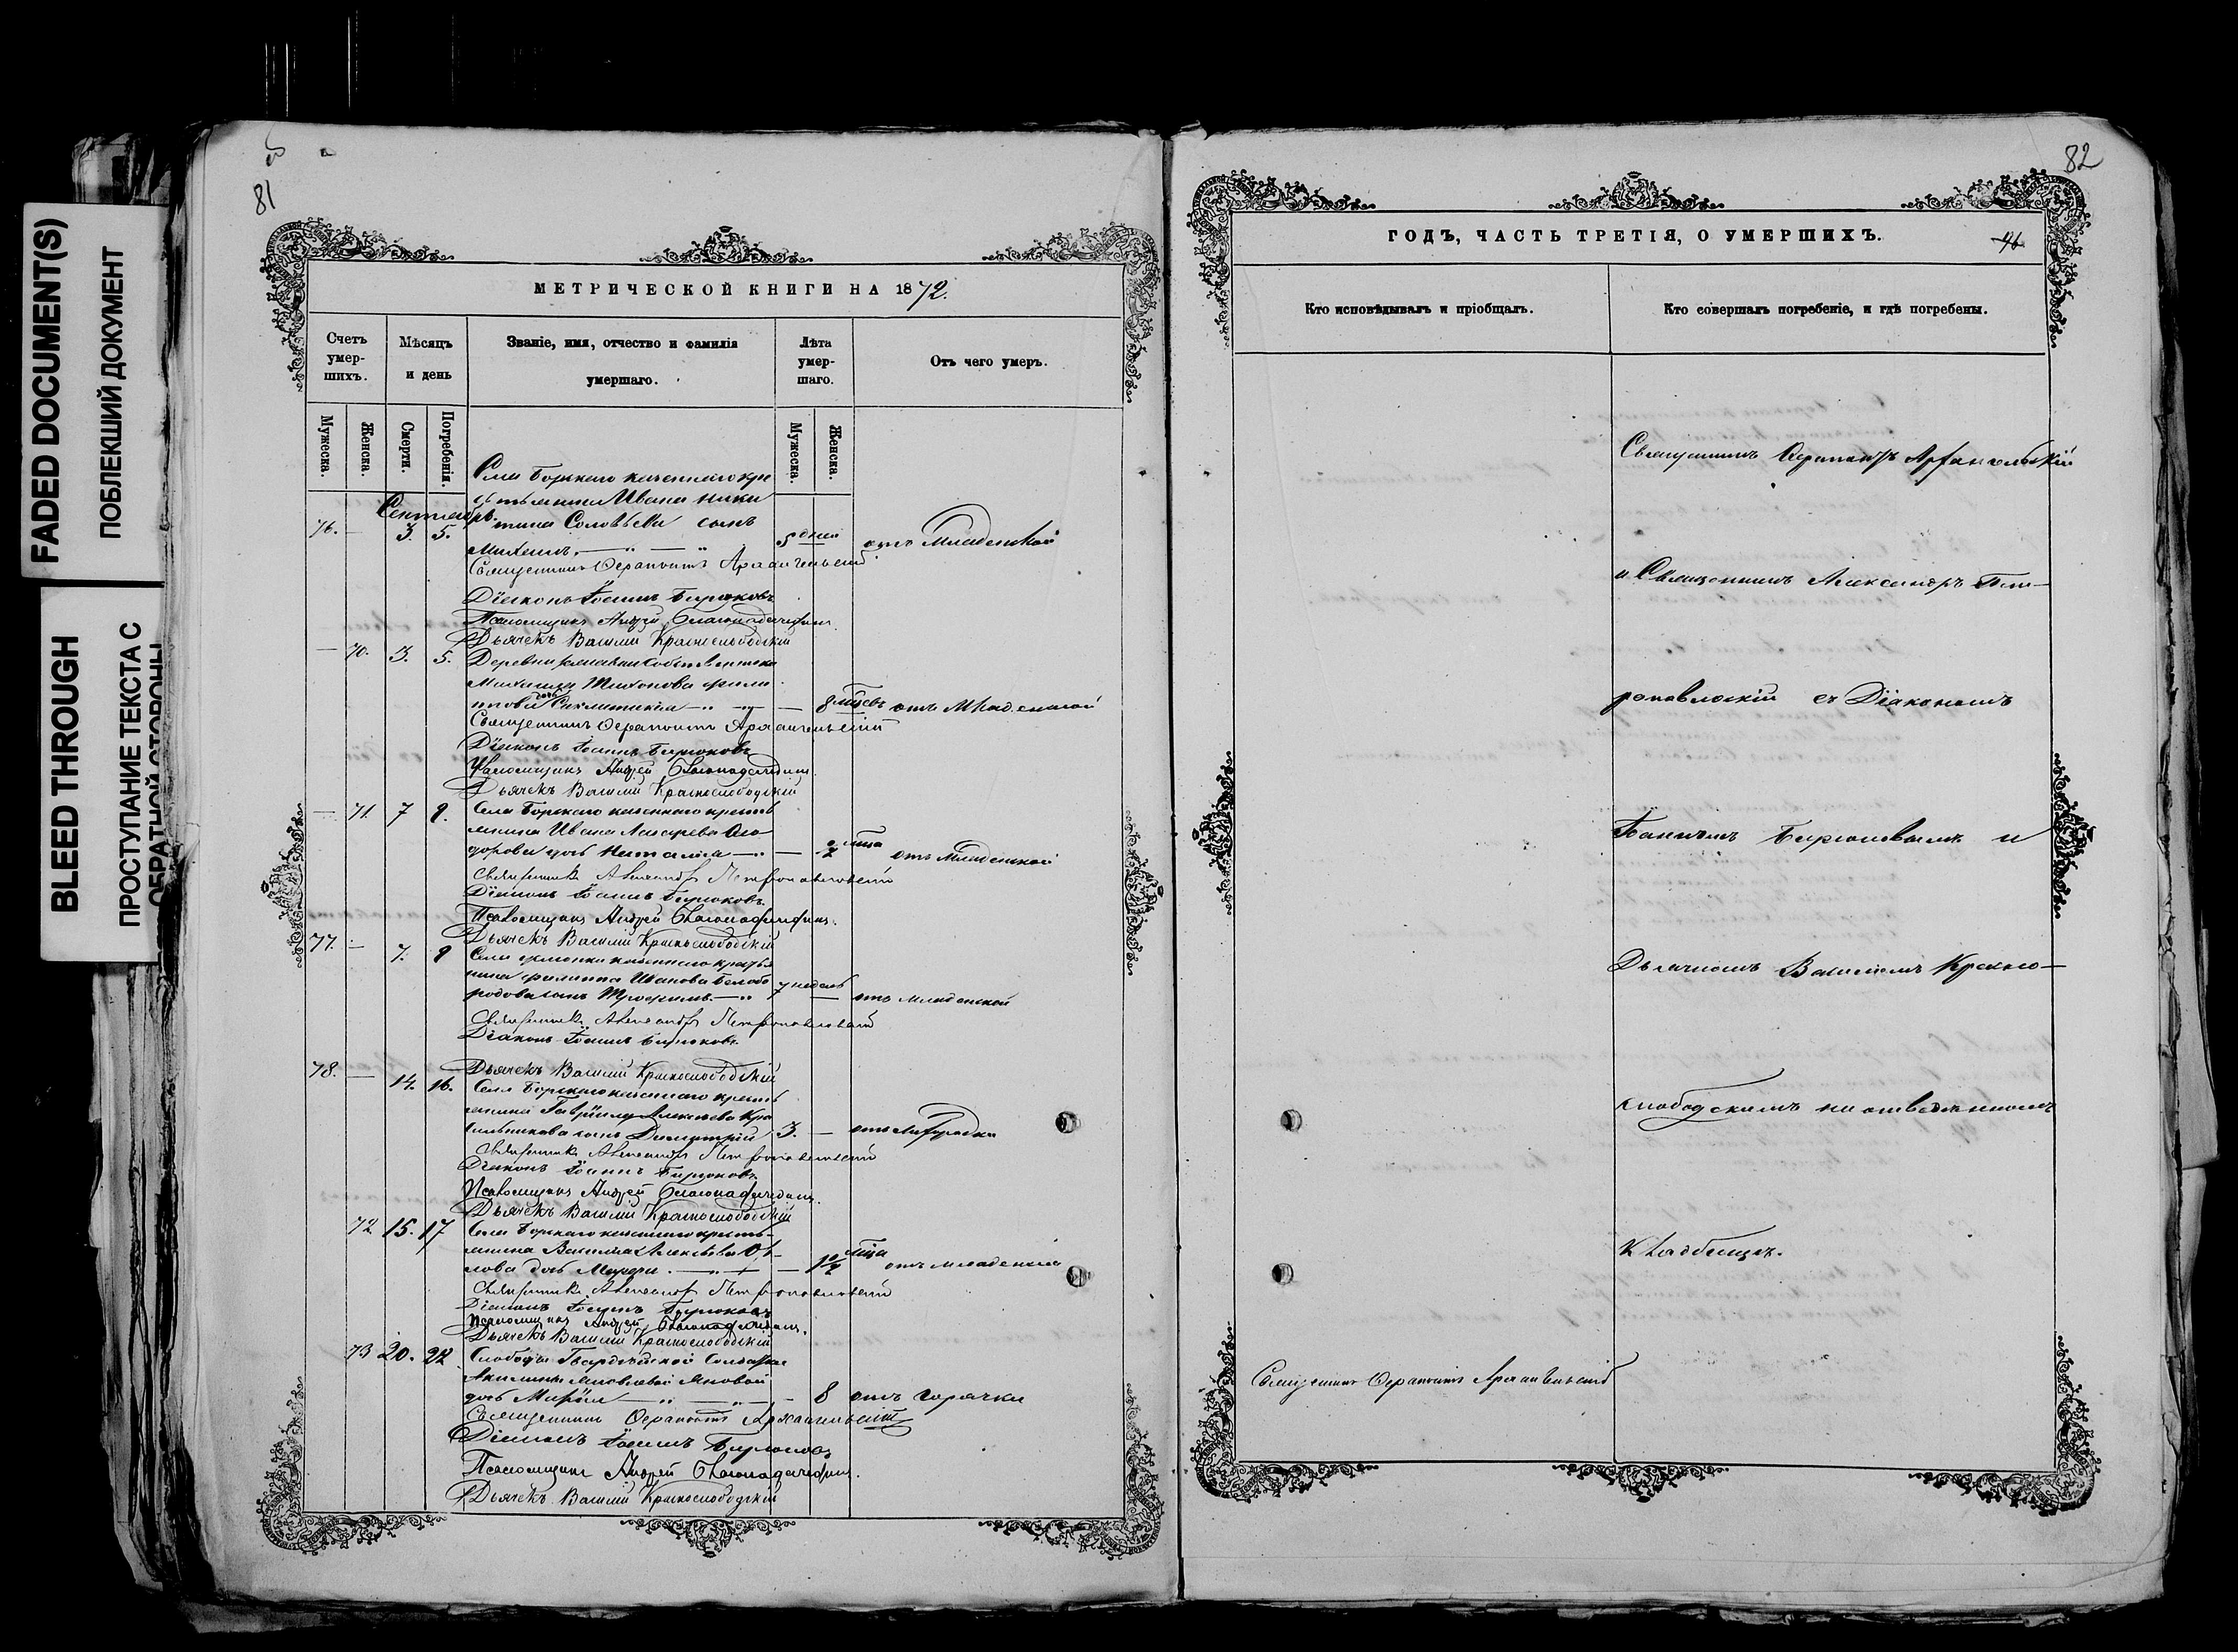 FADED DOCUMENT(S)
ПОБЛЕКШИЙ ДОКУМЕНТ
BLEED THROUGH
ПРОСТУПАНИЕ ТЕКСТА С
ОБРАТНОЙ СТОРОНЫ
81
МЕТРИЧЕСКОЙ КНИГИ НА 1872.
Счетъ умер-шихъ.
Мѣсяцъ и день
Званіе, имя, отчество и фамилія умершаго.
Лѣта умер-шаго.
Отъ чего умеръ.
Мужеска.
Женска.
Смерти.
Погребенія.
Мужеска.
Женска.
Села Борскаго казеннаго кре
стьянина Ивана Ники
Сентябрь
76. — 3. 5. тина Соловьева сынъ 5 дней отъ Младенской
Михаилъ
Священникъ Ферапонтъ Архангельскій
Діаконъ Іоаннъ Бирюковъ
Псаломщикъ Андрей
Дьячекъ Василій Краснослободскій
— 70. 3. 5. Деревни собственника
Михаила Тихонова
дочь — 8 мѣсев отъ Младенской
Священникъ Ферапонтъ Архангельскій
Діаконъ Іоаннъ Бирюковъ
Псаломщикъ Андрей
Дьячекъ Василій Краснослободскій
— 71. 7 9. Села Борскаго казеннаго кресть
янина Ивана Лазарева Ѳео
дорова дочь Наталія — мѣца отъ Младенской
Священникъ Александръ Петропавловскій
Діаконъ Іоаннъ Бирюковъ
Псаломщикъ Андрей
Дьячекъ Василій Краснослободскій
77. — 7. 9 Села казеннаго крестья
нина Филиппа Иванова Белобо
родова сынъ Трофимъ 7 недель — отъ младенской
Священникъ Александръ Петропавловскій
Діаконъ Іоаннъ Бирюковъ
Дьячекъ Василій Краснослободскій
78. — 14. 16. Села Борскаго казеннаго кресть
янина Гавріила Алексѣева Кра
сильникова сынъ Димитрій 3. —
Священникъ Александръ Петропавловскій
Діаконъ Іоаннъ Бирюковъ
Псаломщикъ Андрей
Дьячекъ Василій Краснослободскій
72 15. 17 Села Борскаго казеннаго кресть-
янина Василія Алексѣева Ор-
лова дочь — 1½ мѣца отъ младенской
Священникъ Александръ Петропавловскій
Діаконъ Іоаннъ Бирюковъ
Псаломщикъ Андрей
Дьячекъ Василій Краснослободскій
73 20. 22 Слободы Гвардейской Солдатки
Акилины Яковлевой
дочь Марія — 8 отъ горячки
Священникъ Ферапонтъ Архангельскій
Діаконъ Іоаннъ Бирюковъ
Псаломщикъ Андрей
Дьячекъ Василій Краснослободскій
82
ГОДЪ, ЧАСТЬ ТРЕТІЯ, О УМЕРШИХЪ.
46
Кто исповѣдывалъ и пріобщалъ.
Кто совершалъ погребеніе, и гдѣ погребены.
Священникъ Ферапонтъ Архангельскій
и Священникъ Александръ Пет-
ропавловскій съ Діакономъ
Іоанномъ Бирюковымъ и
Дьячкомъ Василіемъ Красно-
слободскимъ на отведенномъ
кладбищѣ.
Священникъ Ферапонтъ Архангельскій